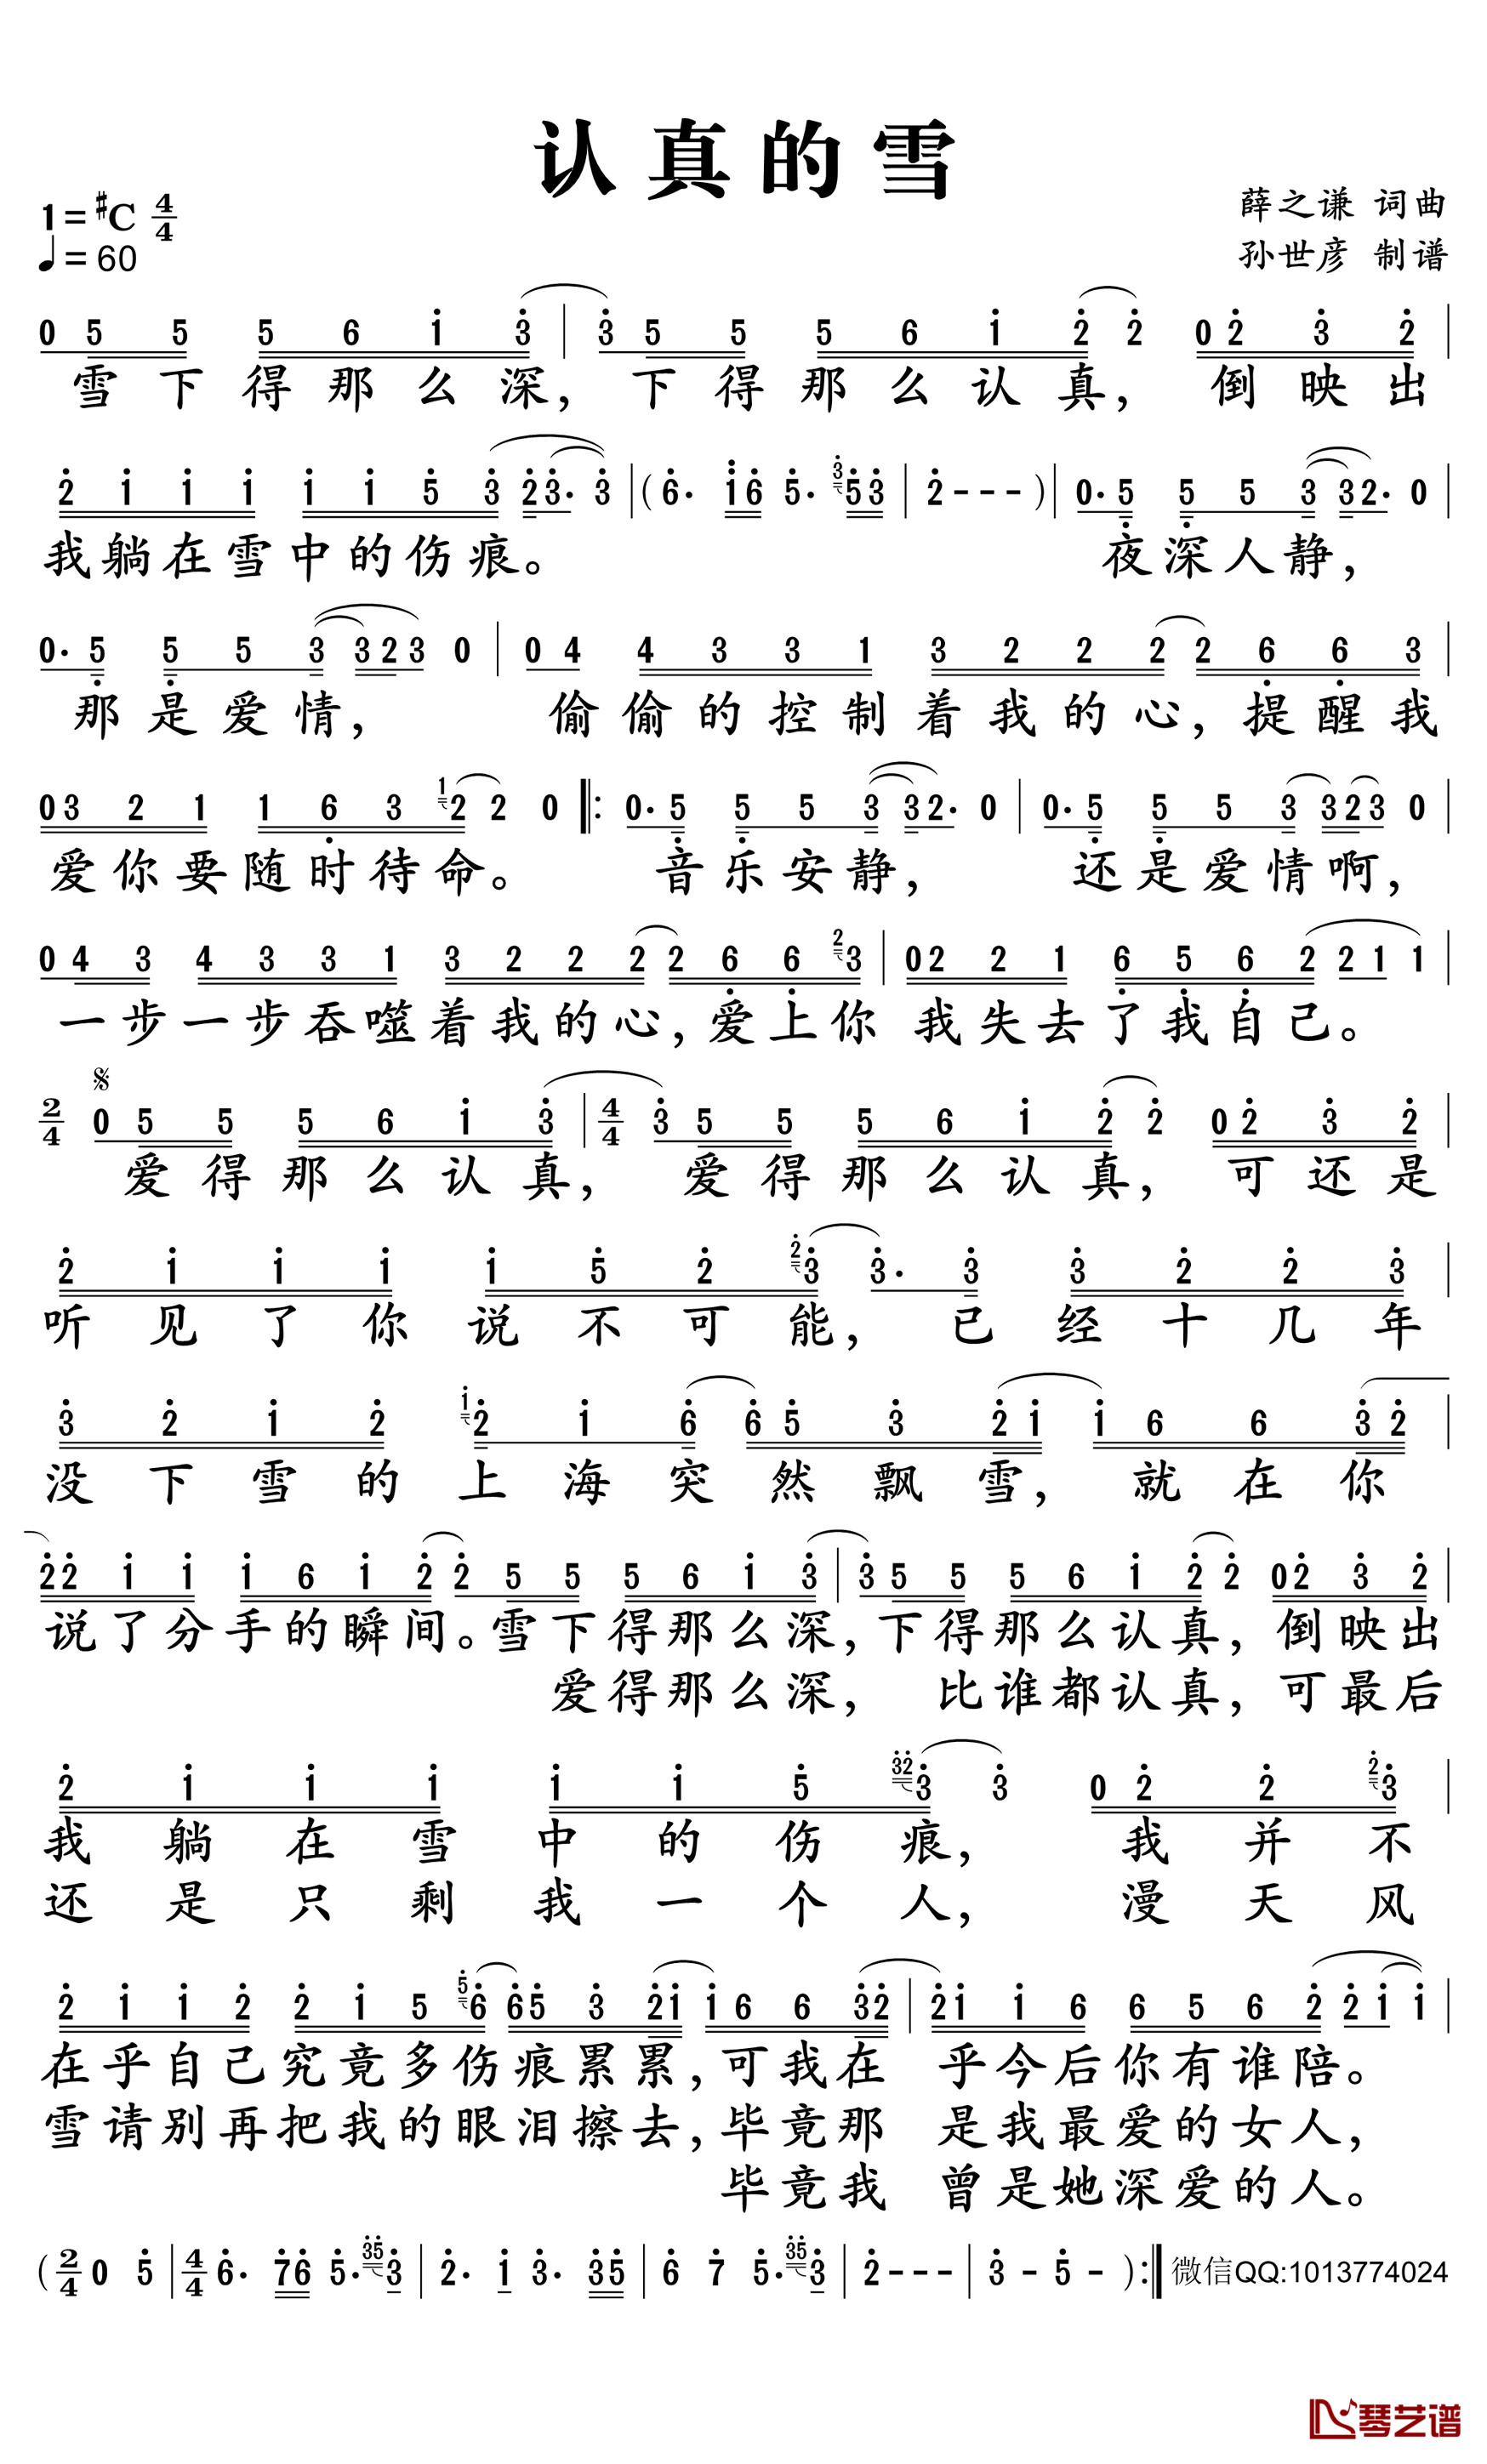 认真的雪
1=#C 4/4
薛之谦 词曲
♩= 60
孙世彦 制谱
0 5 5 5 6 1 3 | 3 5 5 5 6 1 2 2 0 2 3 2 |
雪下得那么深，下得那么认真，倒映出
2 1 1 1 1 1 5 3 2 3· 3 | ( 6· 1 6 5· 3 5 3 | 2 - - - ) | 0· 5 5 5 3 3 2· 0 |
我躺在雪中的伤痕。夜深人静，
0· 5 5 5 3 3 2 3 0 | 0 4 4 3 3 1 3 2 2 2 2 6 6 3 |
那是爱情，偷偷的控制着我的心，提醒我
0 3 2 1 1 6 3 1 2 2 0 |: 0· 5 5 5 3 3 2· 0 | 0· 5 5 5 3 3 2 3 0 |
爱你要随时待命。音乐安静，还是爱情啊，
0 4 3 4 3 3 1 3 2 2 2 2 6 6 2 3 | 0 2 2 1 6 5 6 2 2 1 1 |
一步一步吞噬着我的心，爱上你 我失去了我自己。
2/4 0 5 5 5 6 1 3 | 4/4 3 5 5 5 6 1 2 2 0 2 3 2 |
爱得那么认真，爱得那么认真，可还是
2 1 1 1 1 5 2 2 3 3· 3 3 2 2 3 |
听见了你说不可能，已经十几年
3 2 1 2 1 2 1 6 6 5 3 2 1 1 6 6 3 2 |
没下雪的上海突然飘雪，就在你
2 2 1 1 1 6 1 2 2 5 5 5 6 1 3 | 3 5 5 5 6 1 2 2 0 2 3 2 |
说了分手的瞬间。雪下得那么深，下得那么认真，倒映出
爱得那么深，比谁都认真，可最后
2 1 1 1 1 1 5 3 2 3 3 0 2 2 2 3 |
我躺在雪中的伤痕，我并不
还是只剩我一个人，漫天风
2 1 1 2 2 1 5 5 6 6 5 3 2 1 1 6 6 3 2 | 2 1 1 6 6 5 6 2 2 1 1 |
在乎自己究竟多伤痕累累，可我在 乎今后你有谁陪。
雪请别再把我的眼泪擦去，毕竟那 是我最爱的女人，
毕竟我 曾是她深爱的人。
( 2/4 0 5 | 4/4 6· 7 6 5· 3 5 3 | 2· 1 3· 3 5 | 6 7 5· 3 5 3 | 2 - - - | 3 - 5 - ) :| 微信QQ:1013774024
琴艺谱